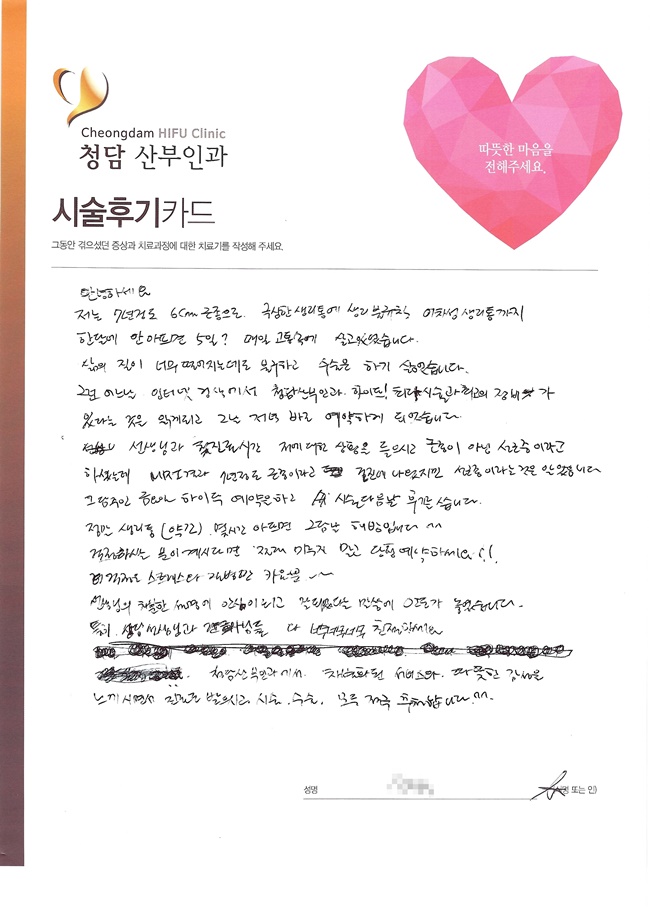 Cheongdam HIFU Clinic
청담 산부인과
따뜻한 마음을
전해주세요.
시술후기카드
그동안 겪으셨던 증상과 치료과정에 대한 치료기를 작성해 주세요.
안녕하세요
저는 7년정도 6cm 근종으로 극심한 생리통에 생리불규칙 이차성 생리통까지
한달에 안아프면 5일? 매일 고통속에 살고있었습니다.
삶의 질이 너무 떨어지는데도 불구하고 수술은 하기 싫었습니다.
그런 어느날 인터넷 검색에서 청담산부인과 하이푸! 최고의 장비 가
있다는 것을 알게되고 그날 저녁 바로 예약하게 되었습니다.
선생님과 첫진료시간 제에대한 상황을 들으시고 근종이 아닌 선근증이라고
하셨는데 MRI결과 7년정도 근종이라고 결과에 나왔지만 선근증이라는것은 안 었습니다
그 하이푸 예약을하고 시술다음날 후기를 씁니다.
정말 생리통 (약간) 몇시간 아프면 그담날 해방입니다 ^^
걱정하시는 분이계시다면 미루지 말고 당장예약하세요!!
걱정은 스트레스다
선생님의 친절한 설명에 안심이되고 말씀에 놓였습니다.
특히, 상담선생님과 간호사님들 다 너무너무너무 친절하세요
청담산부인과에서 차별화된 서비스와 따뜻한 감성을
느끼시면서 진료를 받으시고 시술, 수술, 모두 적극 추천합니다.^^
성명
또는 인)